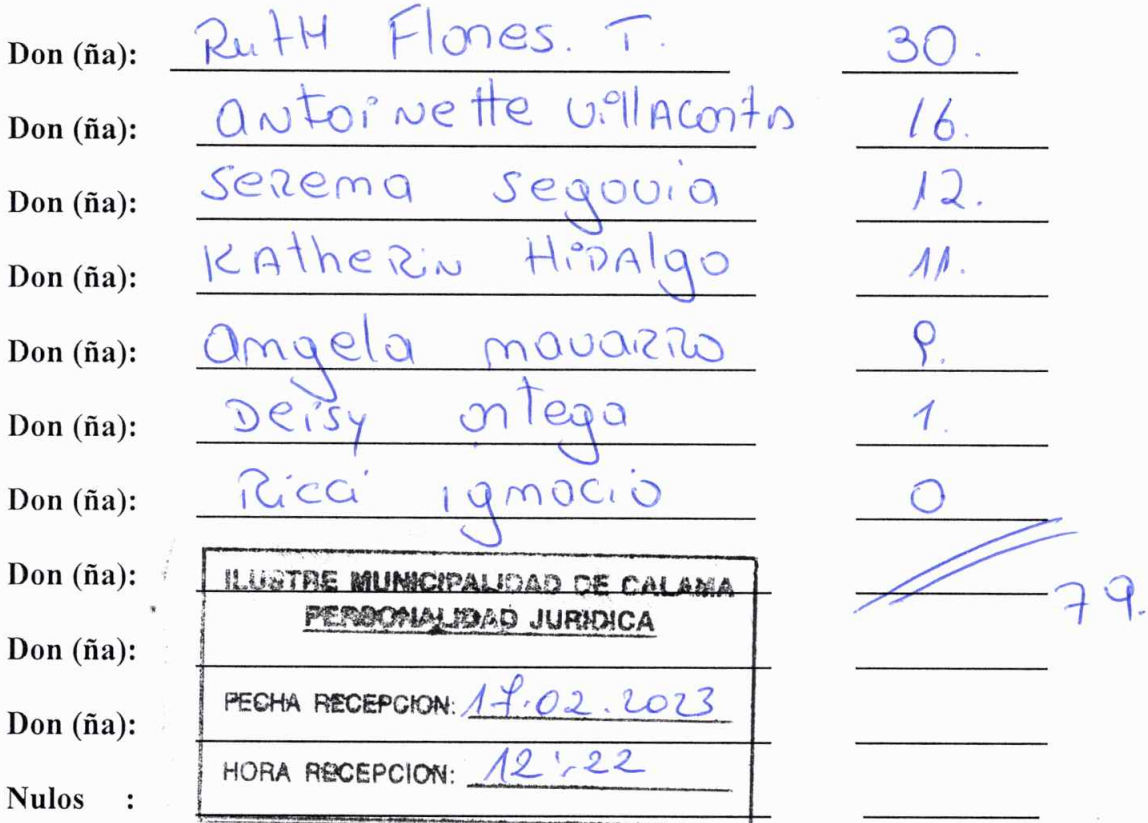 Don (ña): Ruth Flores. T. 30.
Don (ña): Antoinette Villaconta 16.
Don (ña): Serema Segovia 12.
Don (ña): Katherin Hidalgo 11.
Don (ña): Angela Navarro 9.
Don (ña): Deisy Ortega 1.
Don (ña): Ricci Ignacio 0
Don (ña):
ILUSTRE MUNICIPALIDAD DE CALAMA
PERSONALIDAD JURIDICA
79.
Don (ña):
FECHA RECEPCION: 17.02.2023
Don (ña):
HORA RECEPCION: 12:22
Nulos :